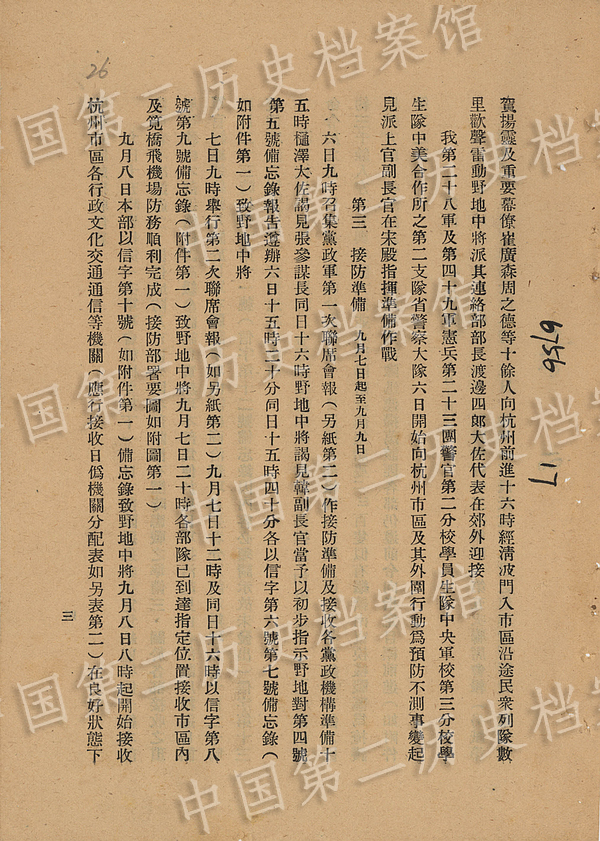 賀揚靈及重要幕僚崔廣森周之德等十餘人向杭州前進十六時經淸波門入市區沿途民衆列隊數
里歡聲雷動野地中將派其連絡部部長渡邊四郎大佐代表在郊外迎接
我第二十八軍及第四十九軍憲兵第二十三團警官第二分校學員生隊中央軍校第三分校學
生隊中美合作所之第二支隊省警察大隊六日開始向杭州市區及其外圍行動爲預防不測事變起
見派上官副長官在宋殿指揮準備作戰
第三 接防準備 九月七日起至九月九日
六日九時召集黨政軍第一次聯席會報(另紙第二)作接防準備及接收各黨政機構準備十
五時樋澤大佐謁見張參謀長同日十六時野地中將謁見韓副長官當予以初步指示野地對第四號
第五號備忘錄報告遵辦六日十五時二十分同日十五時四十分各以信字第六號第七號備忘錄(
如附件第一)致野地中將
七日九時舉行第二次聯席會報(如另紙第二)九月七日十二時及同日十六時以信字第八
號第九號備忘錄(附件第一)致野地中將九月七日二十時各部隊已到達指定位置接收市區內
及筧橋飛機場防務順利完成(接防部署要圖如附圖第一)
九月八日本部以信字第十號(如附件第一)備忘錄致野地中將九月八日八時起開始接收
杭州市區各行政文化交通通信等機關(應行接收日僞機關分配表如另表第二)在良好狀態下
三
26
6756
17
中国第二历史档案馆
中国第二历史档案馆
中国第二历史档案馆
中国第二历史档案馆
中国第二历史档案馆
中国第二历史档案馆